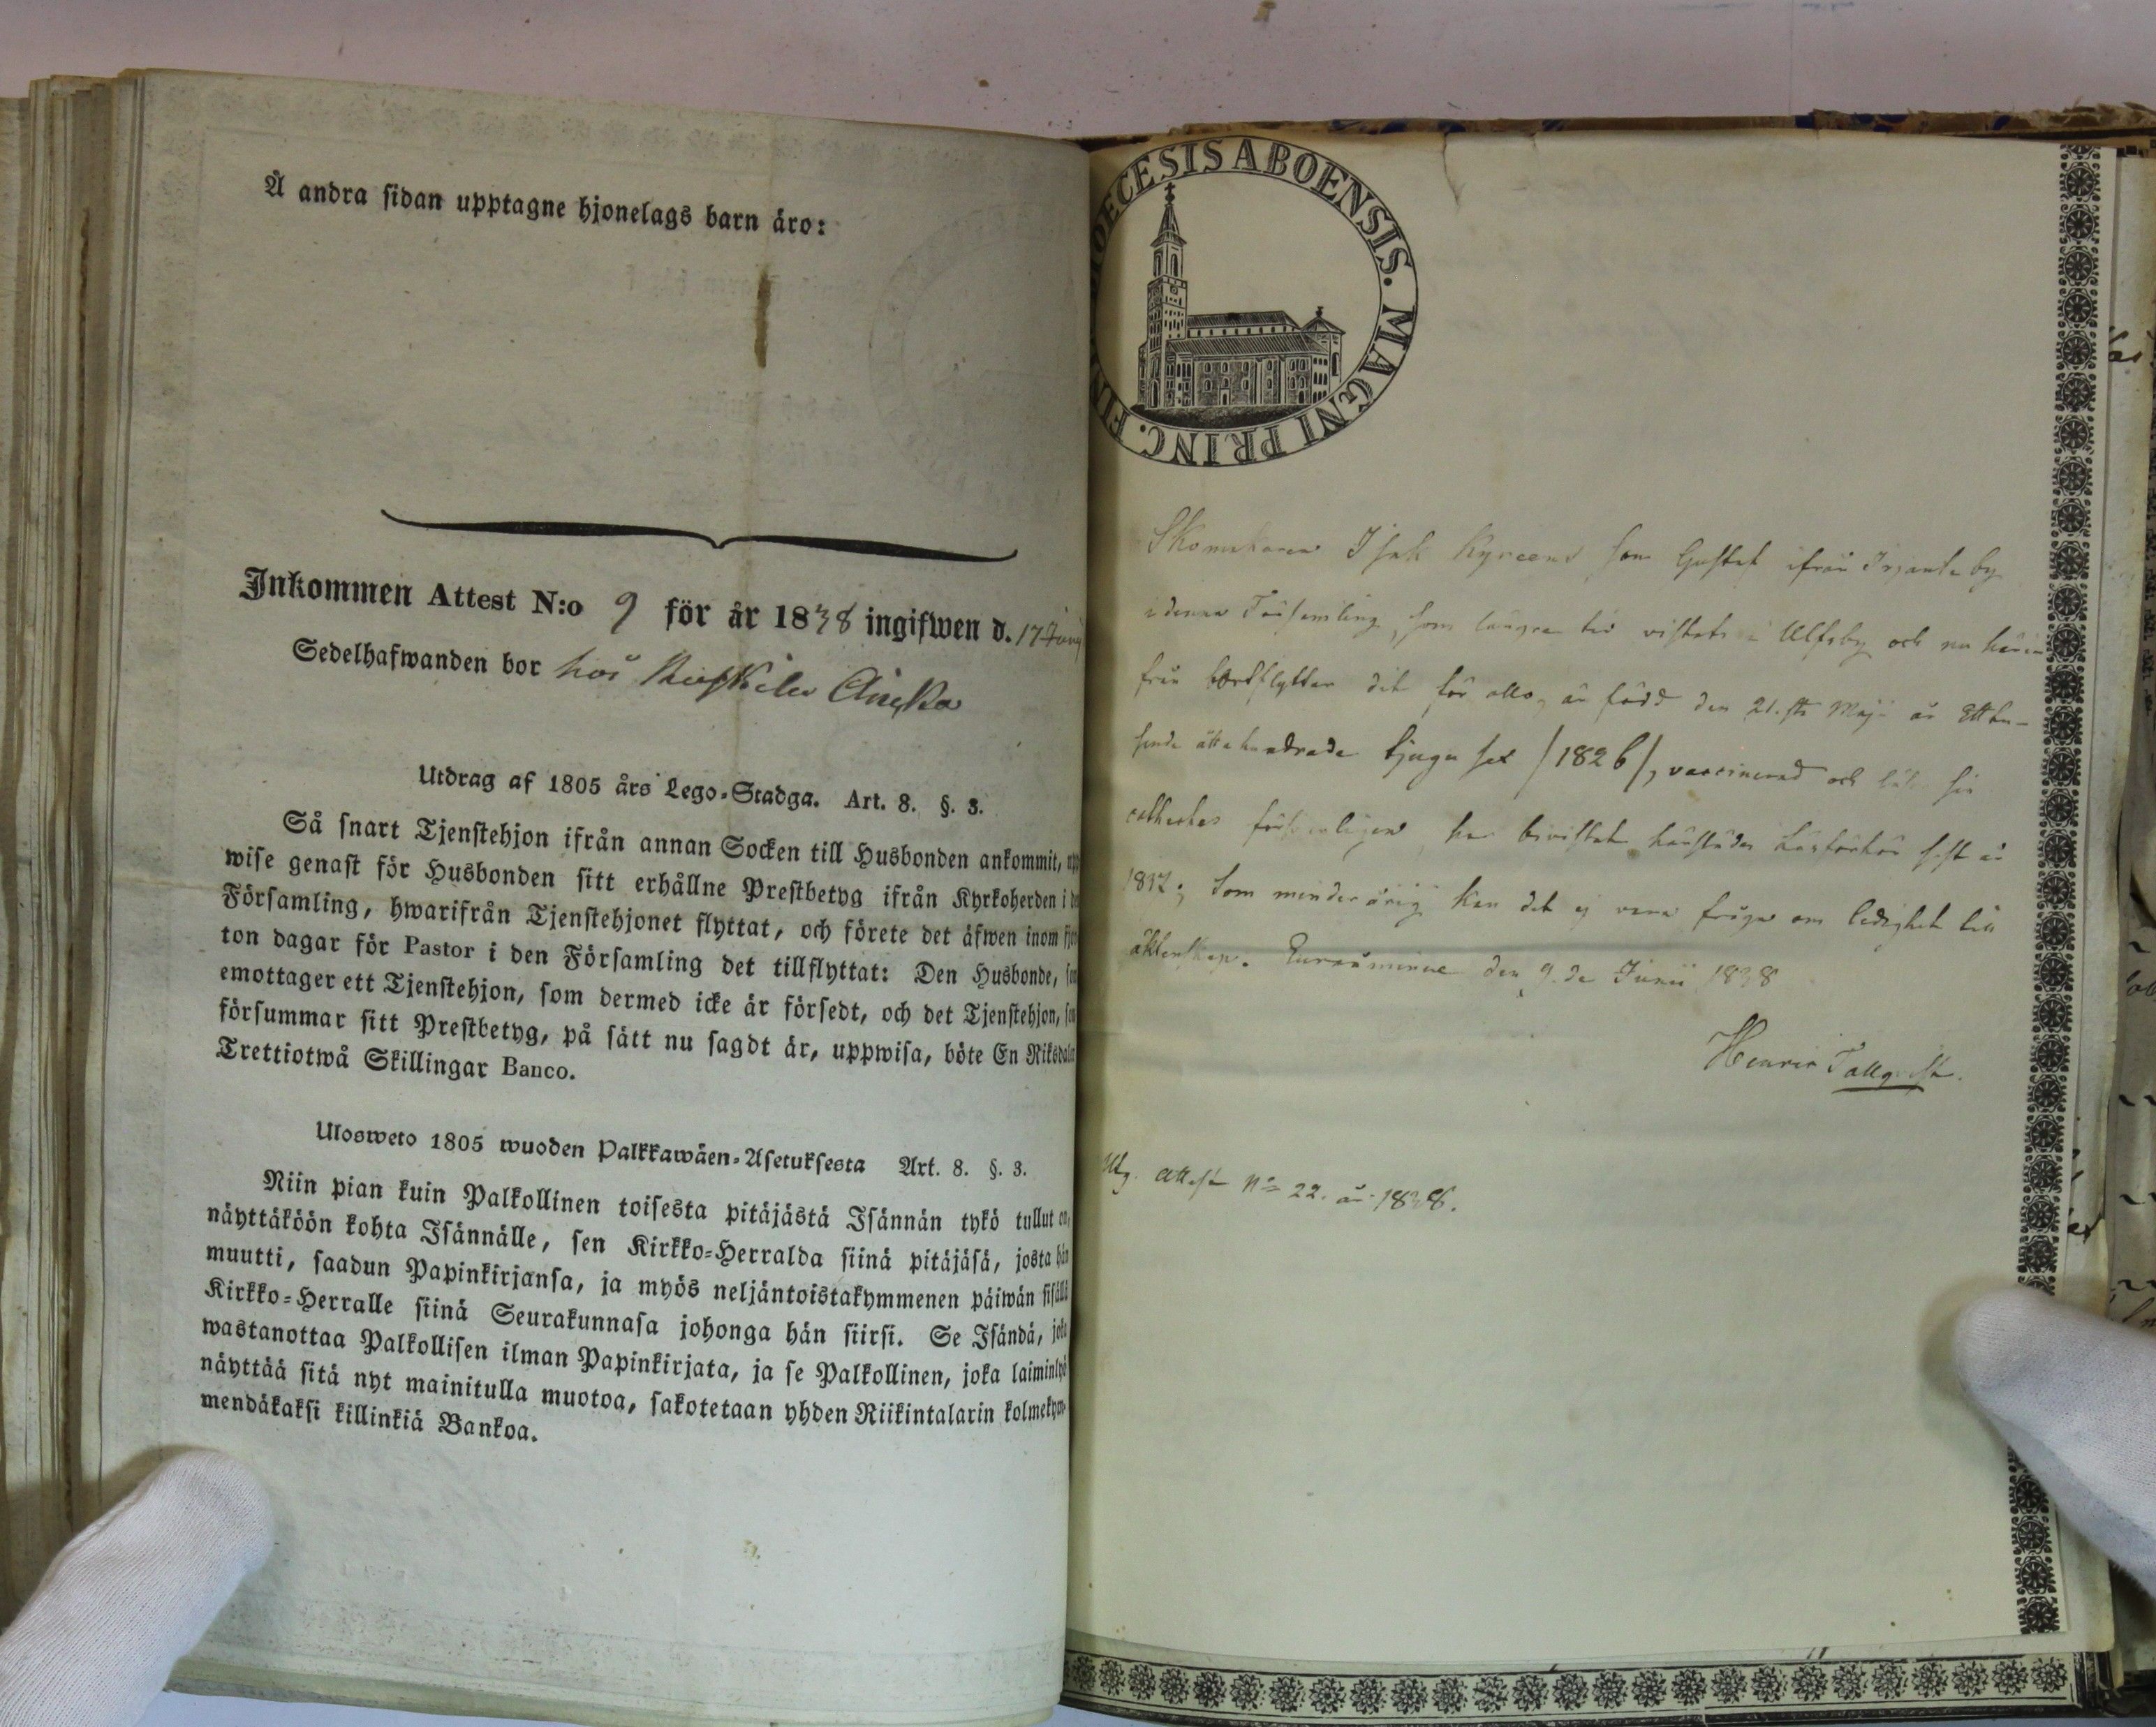 Å andra sidan upptagne hjonelags barn äro:
Inkommen Attest N:o 9 för år 1838 ingifwen d. 17 Junij
Sedelhafwanden bor hos
Utdrag af 1805 års Lego-Stadga. Art. 8. §. 3.
Så snart Tjenstehjon ifrån annan Socken till Husbonden ankommit, upp
wise genast för Husbonden sitt erhållne Prestbetyg ifrån Kyrkoherden i de
Församling, hwarifrån Tjenstehjonet flyttat, och förete det äfwen inom fjor
ton dagar för Pastor i den Församling det tillflyttat: Den Husbonde, som
emottager ett Tjenstehjon, som dermed icke är försedt, och det Tjenstehjon, som
försummar sitt Prestbetyg, på sätt nu sagdt är, uppwisa, böte En Riksdaler
Trettiotwå Skillingar Banco.
Ulosweto 1805 wuoden Palkkawäen-Asetuksesta Art. 8. §. 3.
Niin pian kuin Palkollinen toisesta pitäjästä Isännän tykö tullut on,
näyttäköön kohta Isännälle, sen Kirkko-Herralda siinä pitäjäsä, josta hän
muutti, saadun Papinkirjansa, ja myös neljäntoistakymmenen päiwän sisällä
Kirkko-Herralle siinä Seurakunnasa johonga hän siirsi. Se Isändä, joka
wastanottaa Palkollisen ilman Papinkirjata, ja se Palkollinen, joka laiminlyö
näyttää sitä nyt mainitulla muotoa, sakotetaan yhden Riikintalarin kolmekym-
mendäkaksi killinkiä Bankoa.
DIOECESIS ABOENSIS. MAGNI PRINC. FINL.
Skomakaren Isak son Gustaf ifrån Irjante by
i denna Församling, som längre tid vistats i Ulfsby och nu här
från bortflyttar dit för allo, är född den 21.sta Maji år Ett tu-
sende åtta hundrade tjugu sex /1826/, vaccinerad och läser sin
catheches försvarligen, har bevistat härstädes Läsförhör sist år
1837; Som minderårig kan det ej vara fråga om ledighet till
äktenskap. Euraåminne den 9.de Junii 1838
Henric Tallqvist.
Utg. Attest No 22. år 1838.